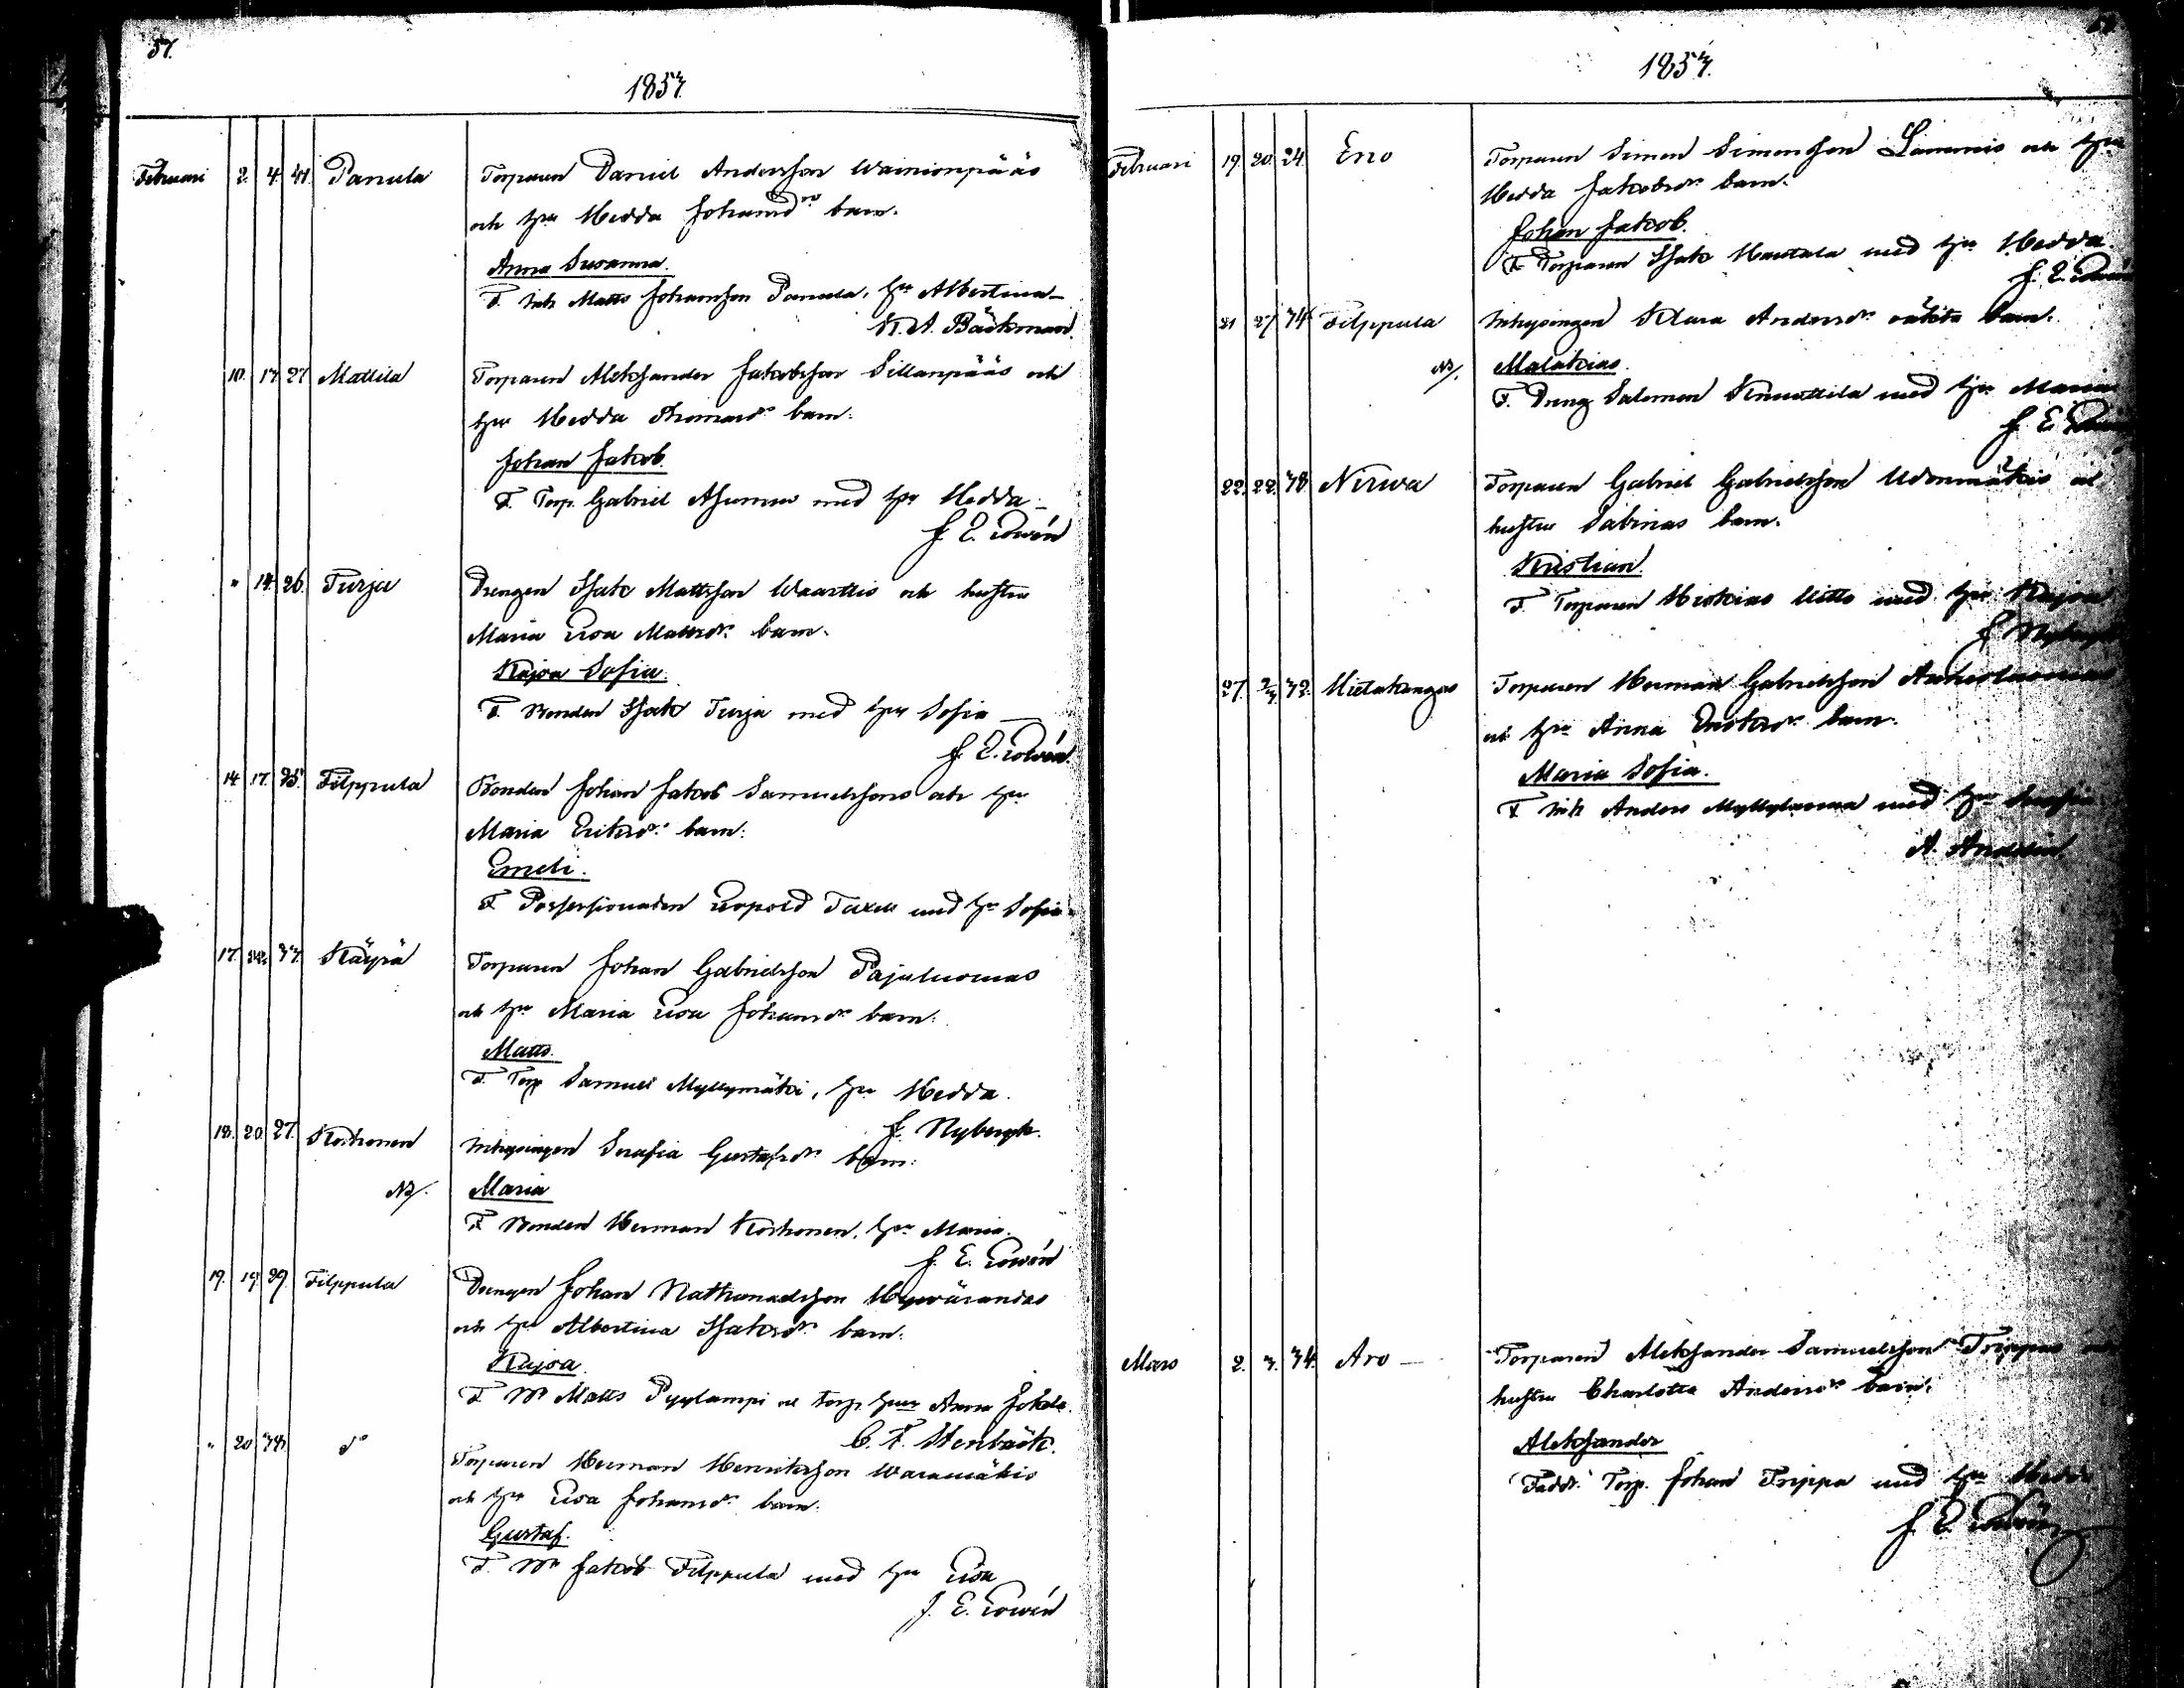 57.
1857.
Februari 2. 4. 41. Panula Torparen Daniel Andersson Wainionpääs
och hu Hedda Johansdr barn.
Anna Susanna.
F. Inh Matts Johansson Panula, hu Albertina
K. A. Bäckman.
10. 14 27 Mattila Torparen Aleksander Jakobsson Sillanpääs och
hu Hedda Thomasdr barn.
Johan Jakob
F. Torp. Gabriel med hu Hedda
J. E. Lowén
" 14. 26. Turja Drengen Isak Mattsson Waarttis och hustru
Maria Lisa Mattsdr barn.
Kajsa Sofia.
F. Bonden Isak Turja med hu Sofia
J. E. Lowén.
14 17. 35. Filppula Bonden Johan Jakob Samuelssons och hu
Maria Eriksdr barn.
Emeli.
F. Possessionaten Leopold med hu Sofia
17. 37. Käyrä Torparen Johan Gabrielsson Pajuluomas
och hu Maria Lisa Johansdr barn.
Matts.
F. Torp Samuel Myllymäki, hu Hedda.
J. Nybergh.
18. 20. 27. Korhonen Inhysingen Serafia Gustafsdr barn.
Maria
F. Bonden Herman Korhonen, hu Maria.
J. E. Lowén
19. 19 29. Filppula Drengen Johan Nathanaelsson
och hu Albertina Isaksdr barn.
Kajsa
F. Bn Matts Pyylampi och torp hu Anna
C. F. Stenbäck.
" 20 do Torparen Herman Henriksson Waramäkis
och hu Lisa Johansdr barn.
Gustaf.
F. Bn Jakob Filppula med hu Lisa
J. E. Lowén
1857.
Februari 19. 20. 24. Eno Torparen Simon Simonsson Lammis och hu
Hedda Jakobsdr barn.
Johan Jakob.
F. Torparen Isak Hautala med hu Hedda.
J. E. Lowén
21 27 34 Filppula Inhysingen Klara Andersdr oäkta barn.
Malakias.
F. Dreng Salomon Knuuttila med hu Maria
J. E. Lowén
22. 28. Nirwa Torparen Gabriel Gabrielsson och
hustru Sabinas barn.
Kristian.
F. Torparen Hiskias Uitto med hu Kajsa
J. Nybergh
27. 32. Hietakangas Torparen Herman Gabrielsson
och hu Anna Enoksdr barn.
Maria Sofia.
F. Inh Anders Myllyluoma med hu
A. Andelin.
Mars 2. 3. 34. Aro Torparen Aleksander Samuelsson Trippas
hustru Charlotta Andersdr barn.
Aleksander
Faddr. Torp. Johan Trippa med hu Hedda
J. E. Lowén